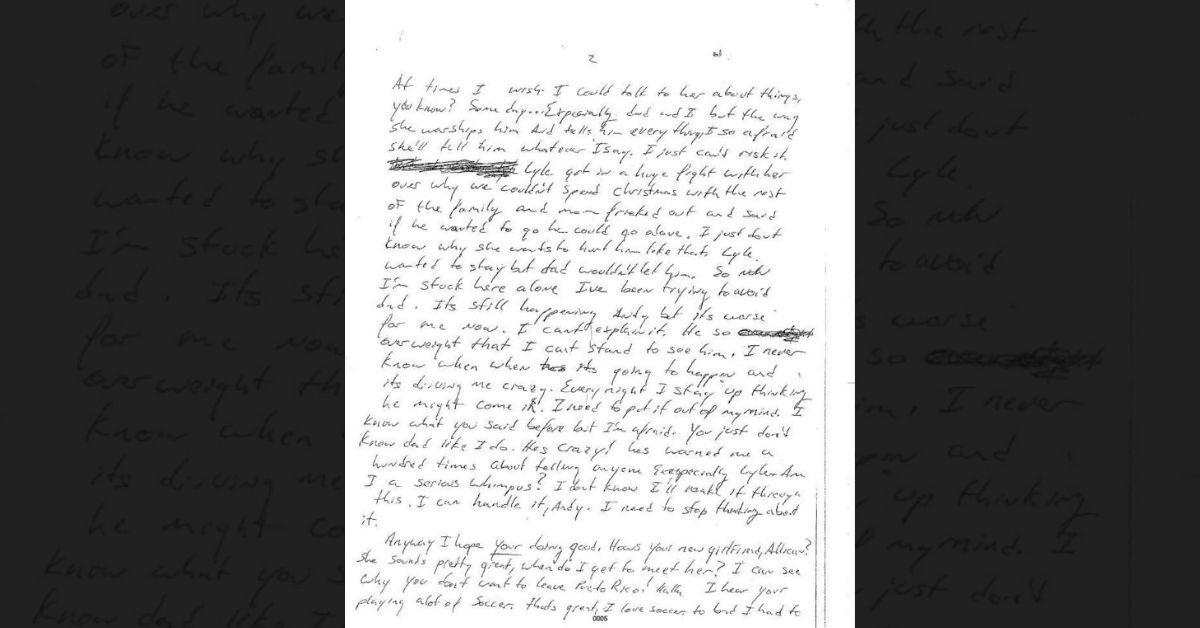 2
At times I wish I could talk to her about things,
you know? Some day...Expecially dad and I but the way
she worships him and tells him everything, I so afraid
she'll tell him whatever I say. I just can't risk it.
Lyle got in a huge fight with her
over why we couldn't spend Christmas with the rest
of the family and mom freaked out and said
if he wanted to go he could go alone. I just dont
know why she wants to hurt him like that. Lyle
wanted to stay but dad wouldn't let him. So now
I'm stuck here alone I've been trying to avoid
dad. Its still happening Andy but its worse
for me now. I can't explain it. He so
overweight that I cant stand to see him. I never
know when when its going to happen and
its driving me crazy. Every night I stay up thinking
he might come in. I need to put it out of my mind. I
know what you said before but I'm afraid. You just don't
know dad like I do. Hes crazy! hes warned me a
hundred times about telling anyone Exespecially Lyle. Am
I a serious whimpus? I dont know I'll make it through
this. I can handle it, Andy. I need to stop thinking about
it.
Anyway I hope your doing good. Hows your new girlfriend,
She sounds pretty great, when do I get to meet her? I can see
why you dont want to leave Puerto Rico! HaHa I hear your
playing alot of soccer. thats great, I love soccer to but I had to
0005
over why we
of the family
if he wanted
know why sh
wanted to sta
I'm stuck he
dad. Its sti
for me now
overweight th
know when
its driving
he might co
know what you s
know dad like I
h the rest
and said
just dont
Lyle.
So now
to avoid
worse
so
im. I never
and
up thinking
my mind. I
just don't